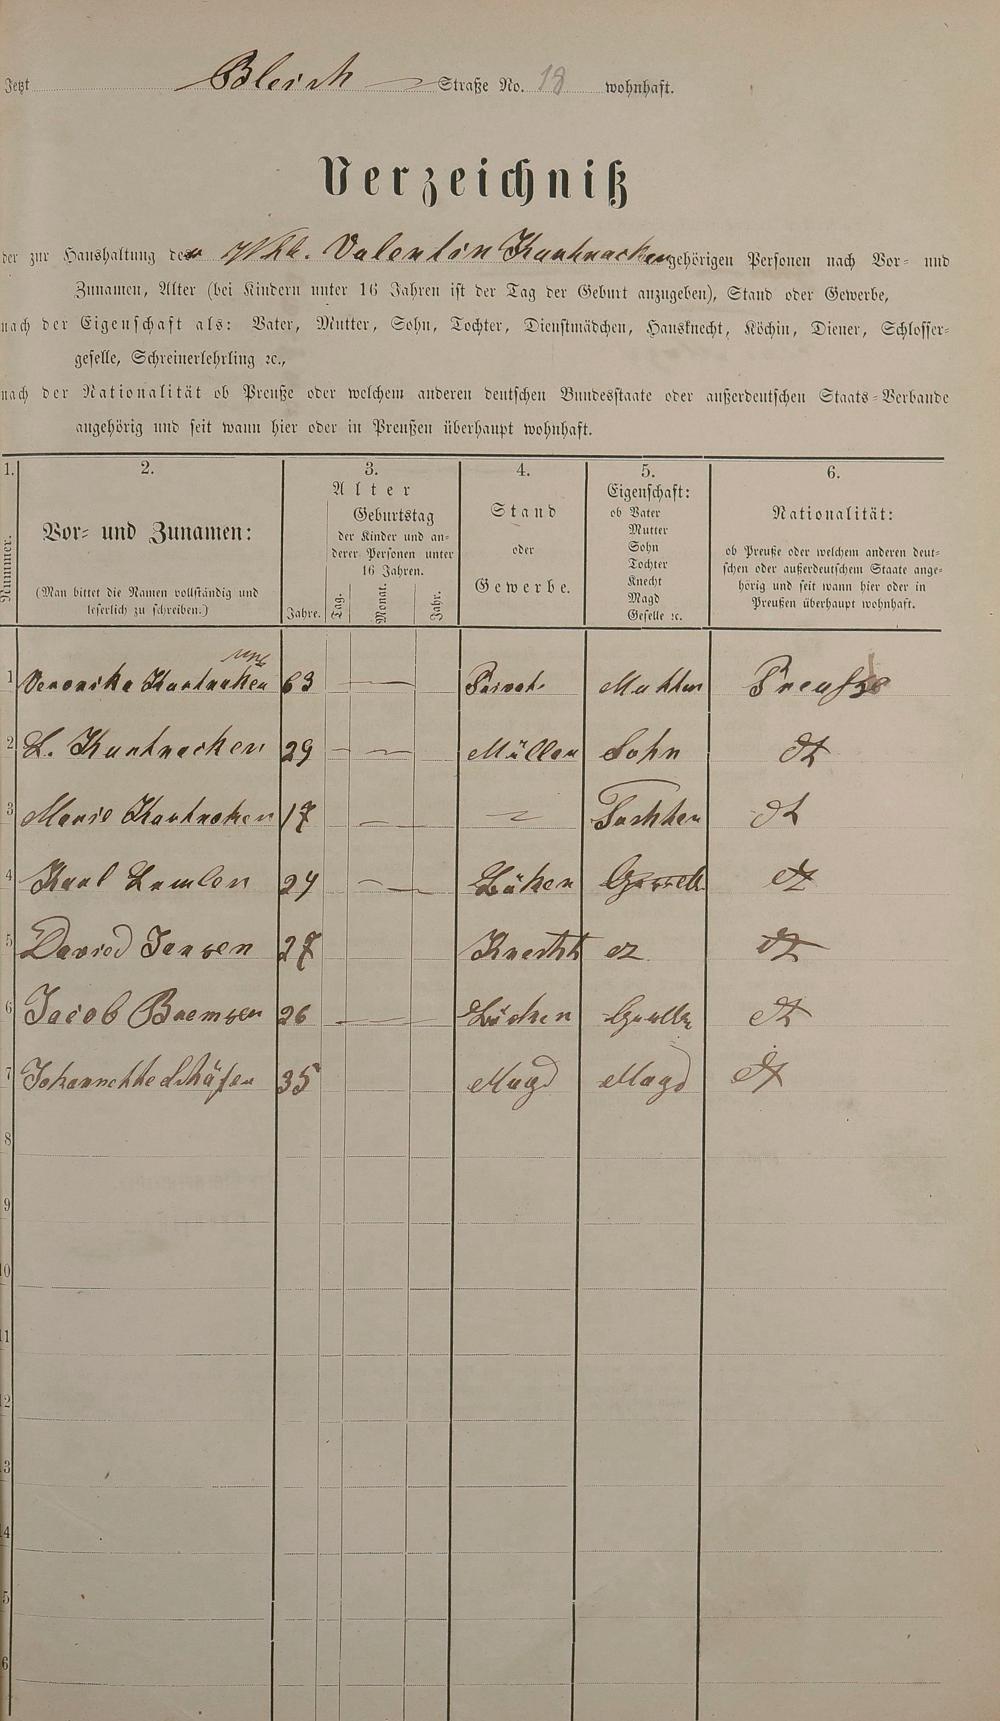 Jetzt Bleich Straße No. 18 wohnhaft.
Verzeichniß
der zur Haushaltung der Wwe. Valentin Kartnacker gehörigen Personen nach Vor- und
Zunamen, Alter (bei Kindern unter 16 Jahren ist der Tag der Geburt anzugeben), Stand oder Gewerbe,
nach der Eigenschaft als: Vater, Mutter, Sohn, Tochter, Dienstmädchen, Hausknecht, Köchin, Diener, Schlosser-
geselle, Schreinerlehrling ꝛc.,
nach der Nationalität ob Preuße oder welchem anderen deutschen Bundesstaate oder außerdeutschen Staats-Verbande
angehörig und seit wann hier oder in Preußen überhaupt wohnhaft.
1. 2. 3. 4. 5. 6.
Nummer.
Vor- und Zunamen:
(Man bittet die Namen vollständig und
leserlich zu schreiben.)
Alter
Jahre.
Geburtstag
der Kinder und an-
derer Personen unter
16 Jahren.
Tag. Monat. Jahr.
Stand
oder
Gewerbe.
Eigenschaft:
ob Vater
Mutter
Sohn
Tochter
Knecht
Magd
Geselle ꝛc.
Nationalität:
ob Preuße oder welchem anderen deut-
schen oder außerdeutschem Staate ange-
hörig und seit wann hier oder in
Preußen überhaupt wohnhaft.
1 Veronika 63 Privat. Mutter Preuße
2 L. 29 Müller Sohn dt
3 Marie 17 — Tochter dt
4 Karl 24 Bäker Gesell dt
5 David Jansen 27 Knecht dt
6 Jacob Bremser 26 Bäcker Geselle dt
7 Johannette Schäfer 35 Magd Magd dt
8
9
10
11
12
13
14
15
16